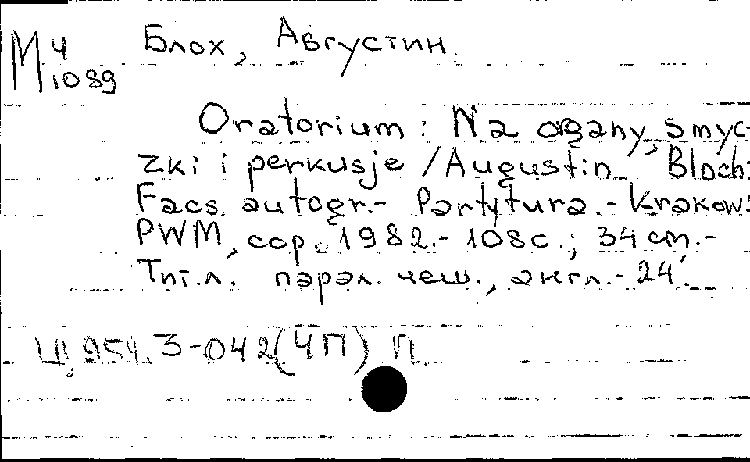 М 4 Блох, Августин.
1089
Oratorium: Na organy, smyc-
zki i perkusje / Augustin Bloch.
Facs. autogr.- Partytura.- Krakow:
PWM, cop. 1982.- 108 с.; 34 cm.-
Тит.л. парал. чеш., англ.- 24'.
Ц 954. 3-042(4П) П